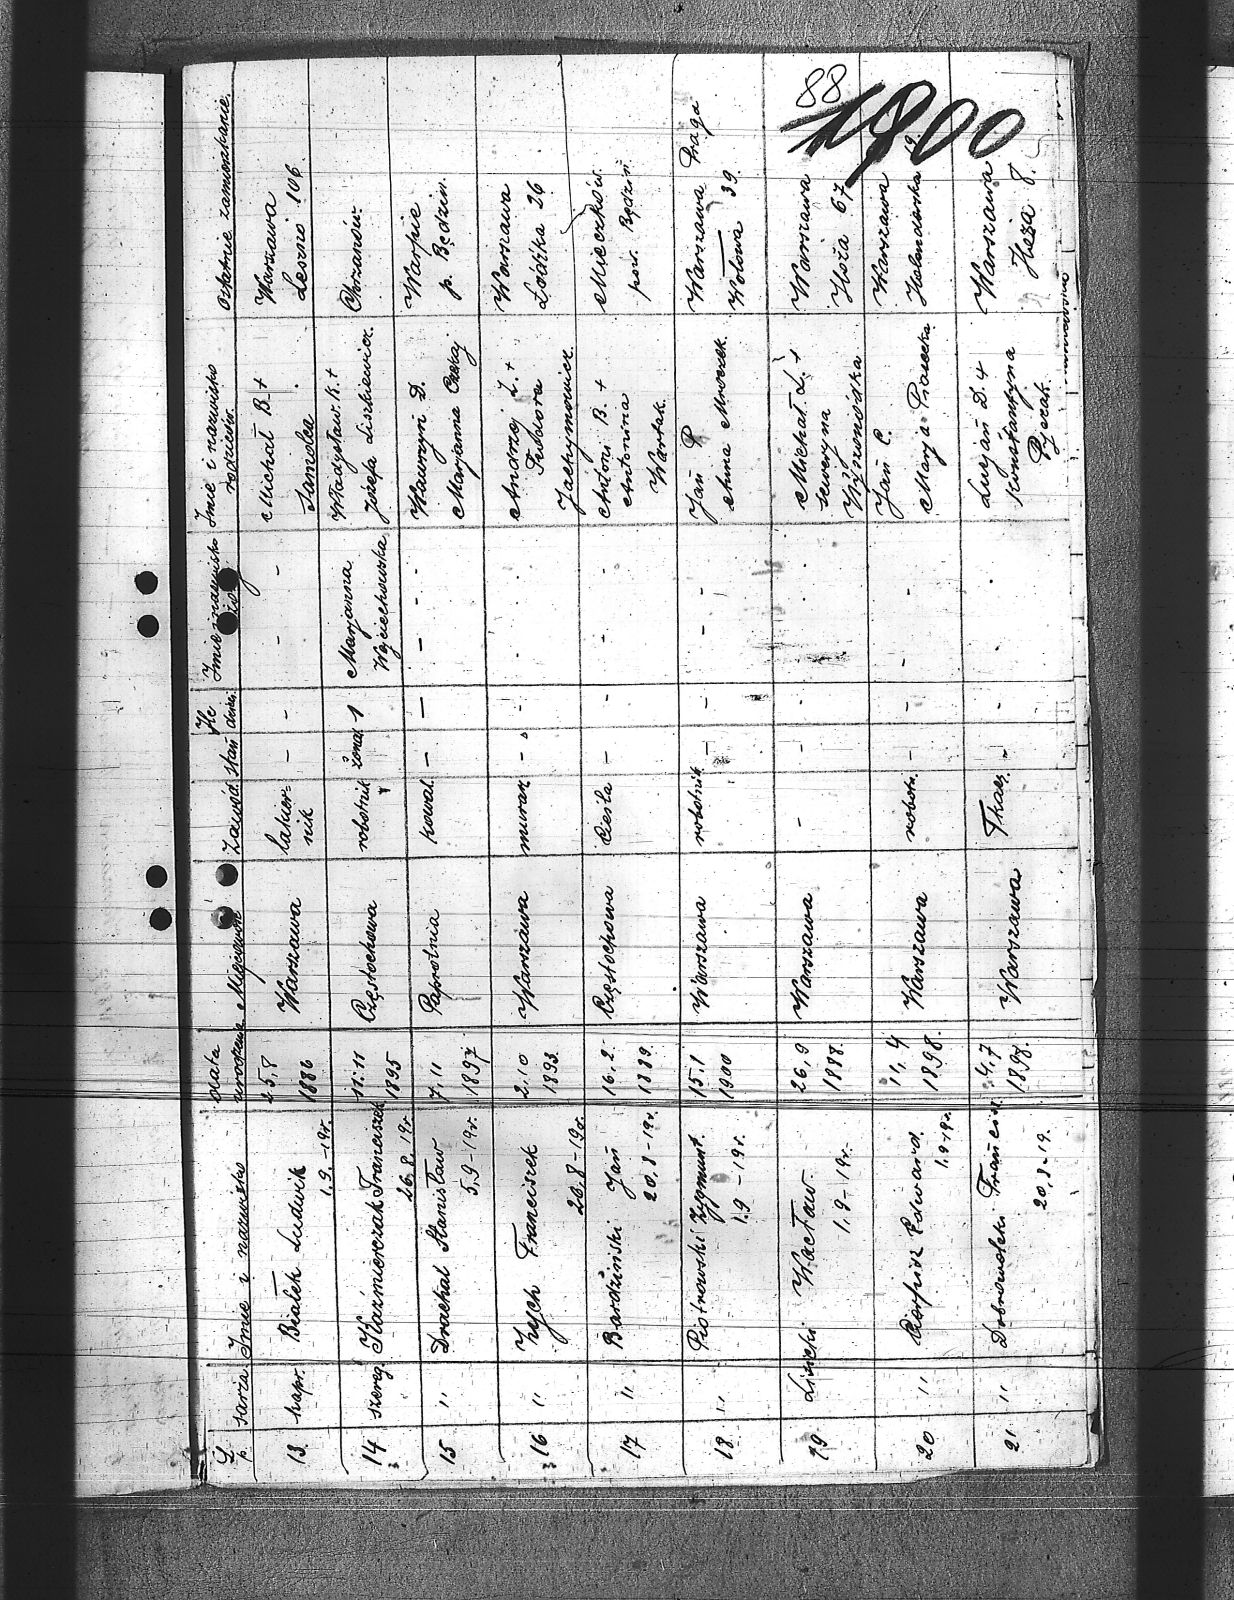 88
1900
L. p. szarża Imie i nazwisko Data urodzenia Miejscowość Zawód stan Ile dzieci Imie i nazwisko żony Imie i nazwisko rodziców Ostatnie zamieszkanie
13 kapr. Białek Ludwik 25.8 Warszawa lakier- - - - - Michał B. + Warszawa
1.9.-19r. 1886 nik Leszno 106
14 szereg. Kaźmierczak Franciszek 11.11 Częstochowa robotnik żonat. 1 Marjanna Władysław K. + Chrzanów
26.8.19r. 1895 Wojciechowska Józefa Liszkiewicz
15 " Drachal Stanisław 7.11 Paprotnia kowal - - - - Wawrzyn D. Warpie
5.9-19r. 1897 Marjanna Czekaj p. Będzin.
16 " Zych Franciszek 2.10 Warszawa murarz - - Andrzej Z. + Warszawa
20.8-19r. 1893 Teodora 26
Jachymowicz
17 " Bardziński Jań 16.2. Częstochowa Cieśla - - - - Antoni B. +
20.8-19r. 1889. Antonina pow. Będzin
Wartak.
18 " Piotrowski Zygmunt. 15.1 Warszawa robotnik - - - - Jań P. Warszawa Praga
1.9-19r. 1900 Anna Mroczek. Wołowa 39
19 Lisicki Wacław. 26.9 Warszawa - - - Michał L. + Warszawa
1.9-19r. 1888. Seweryna Hoża 67
20 " Cierpisz Edward. 11.4 Warszawa robotn. - - - - Jań C. Warszawa
1.9-19r. 1898. Marja Piasecka
21 " Dobrowolski Franciń. 4.7 Warszawa Tkacz. - - Lucjań D. + Warszawa
20.8-19. 1897. Konstantyna Hoża 8.